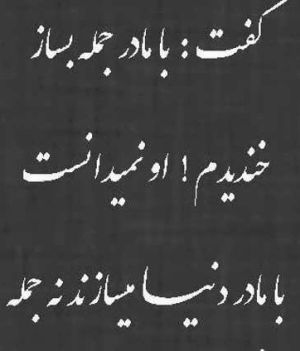 گفت : با مادر جمله بساز
خندیدم ! او نمیدانست
با مادر دنیا میسازند نه جمله